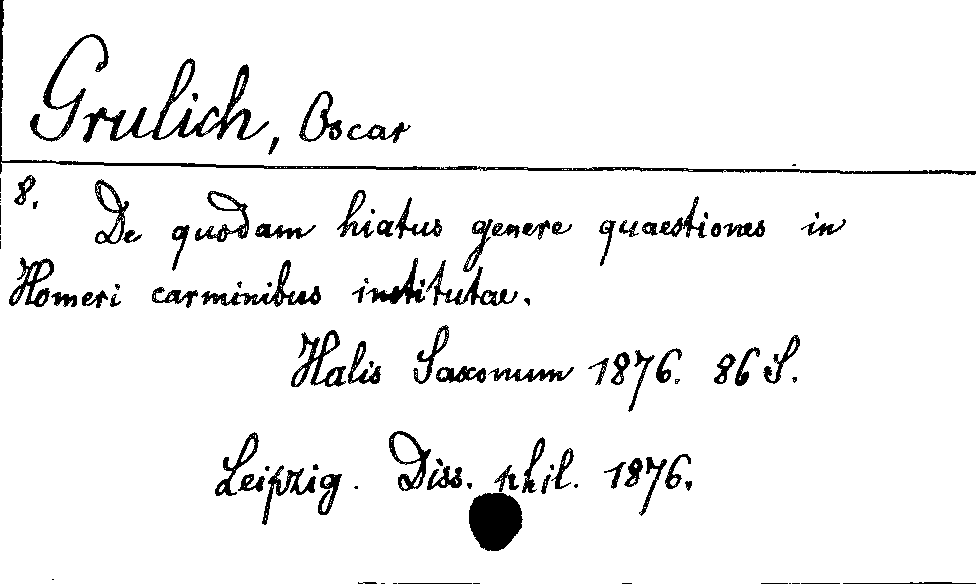 Grulich, Oscar
8. De quodam hiatus genere quaestiones in
Homeri carminibus institutae.
Halis Saxonum 1876. 86 S.
Leipzig. Diss. phil. 1876.